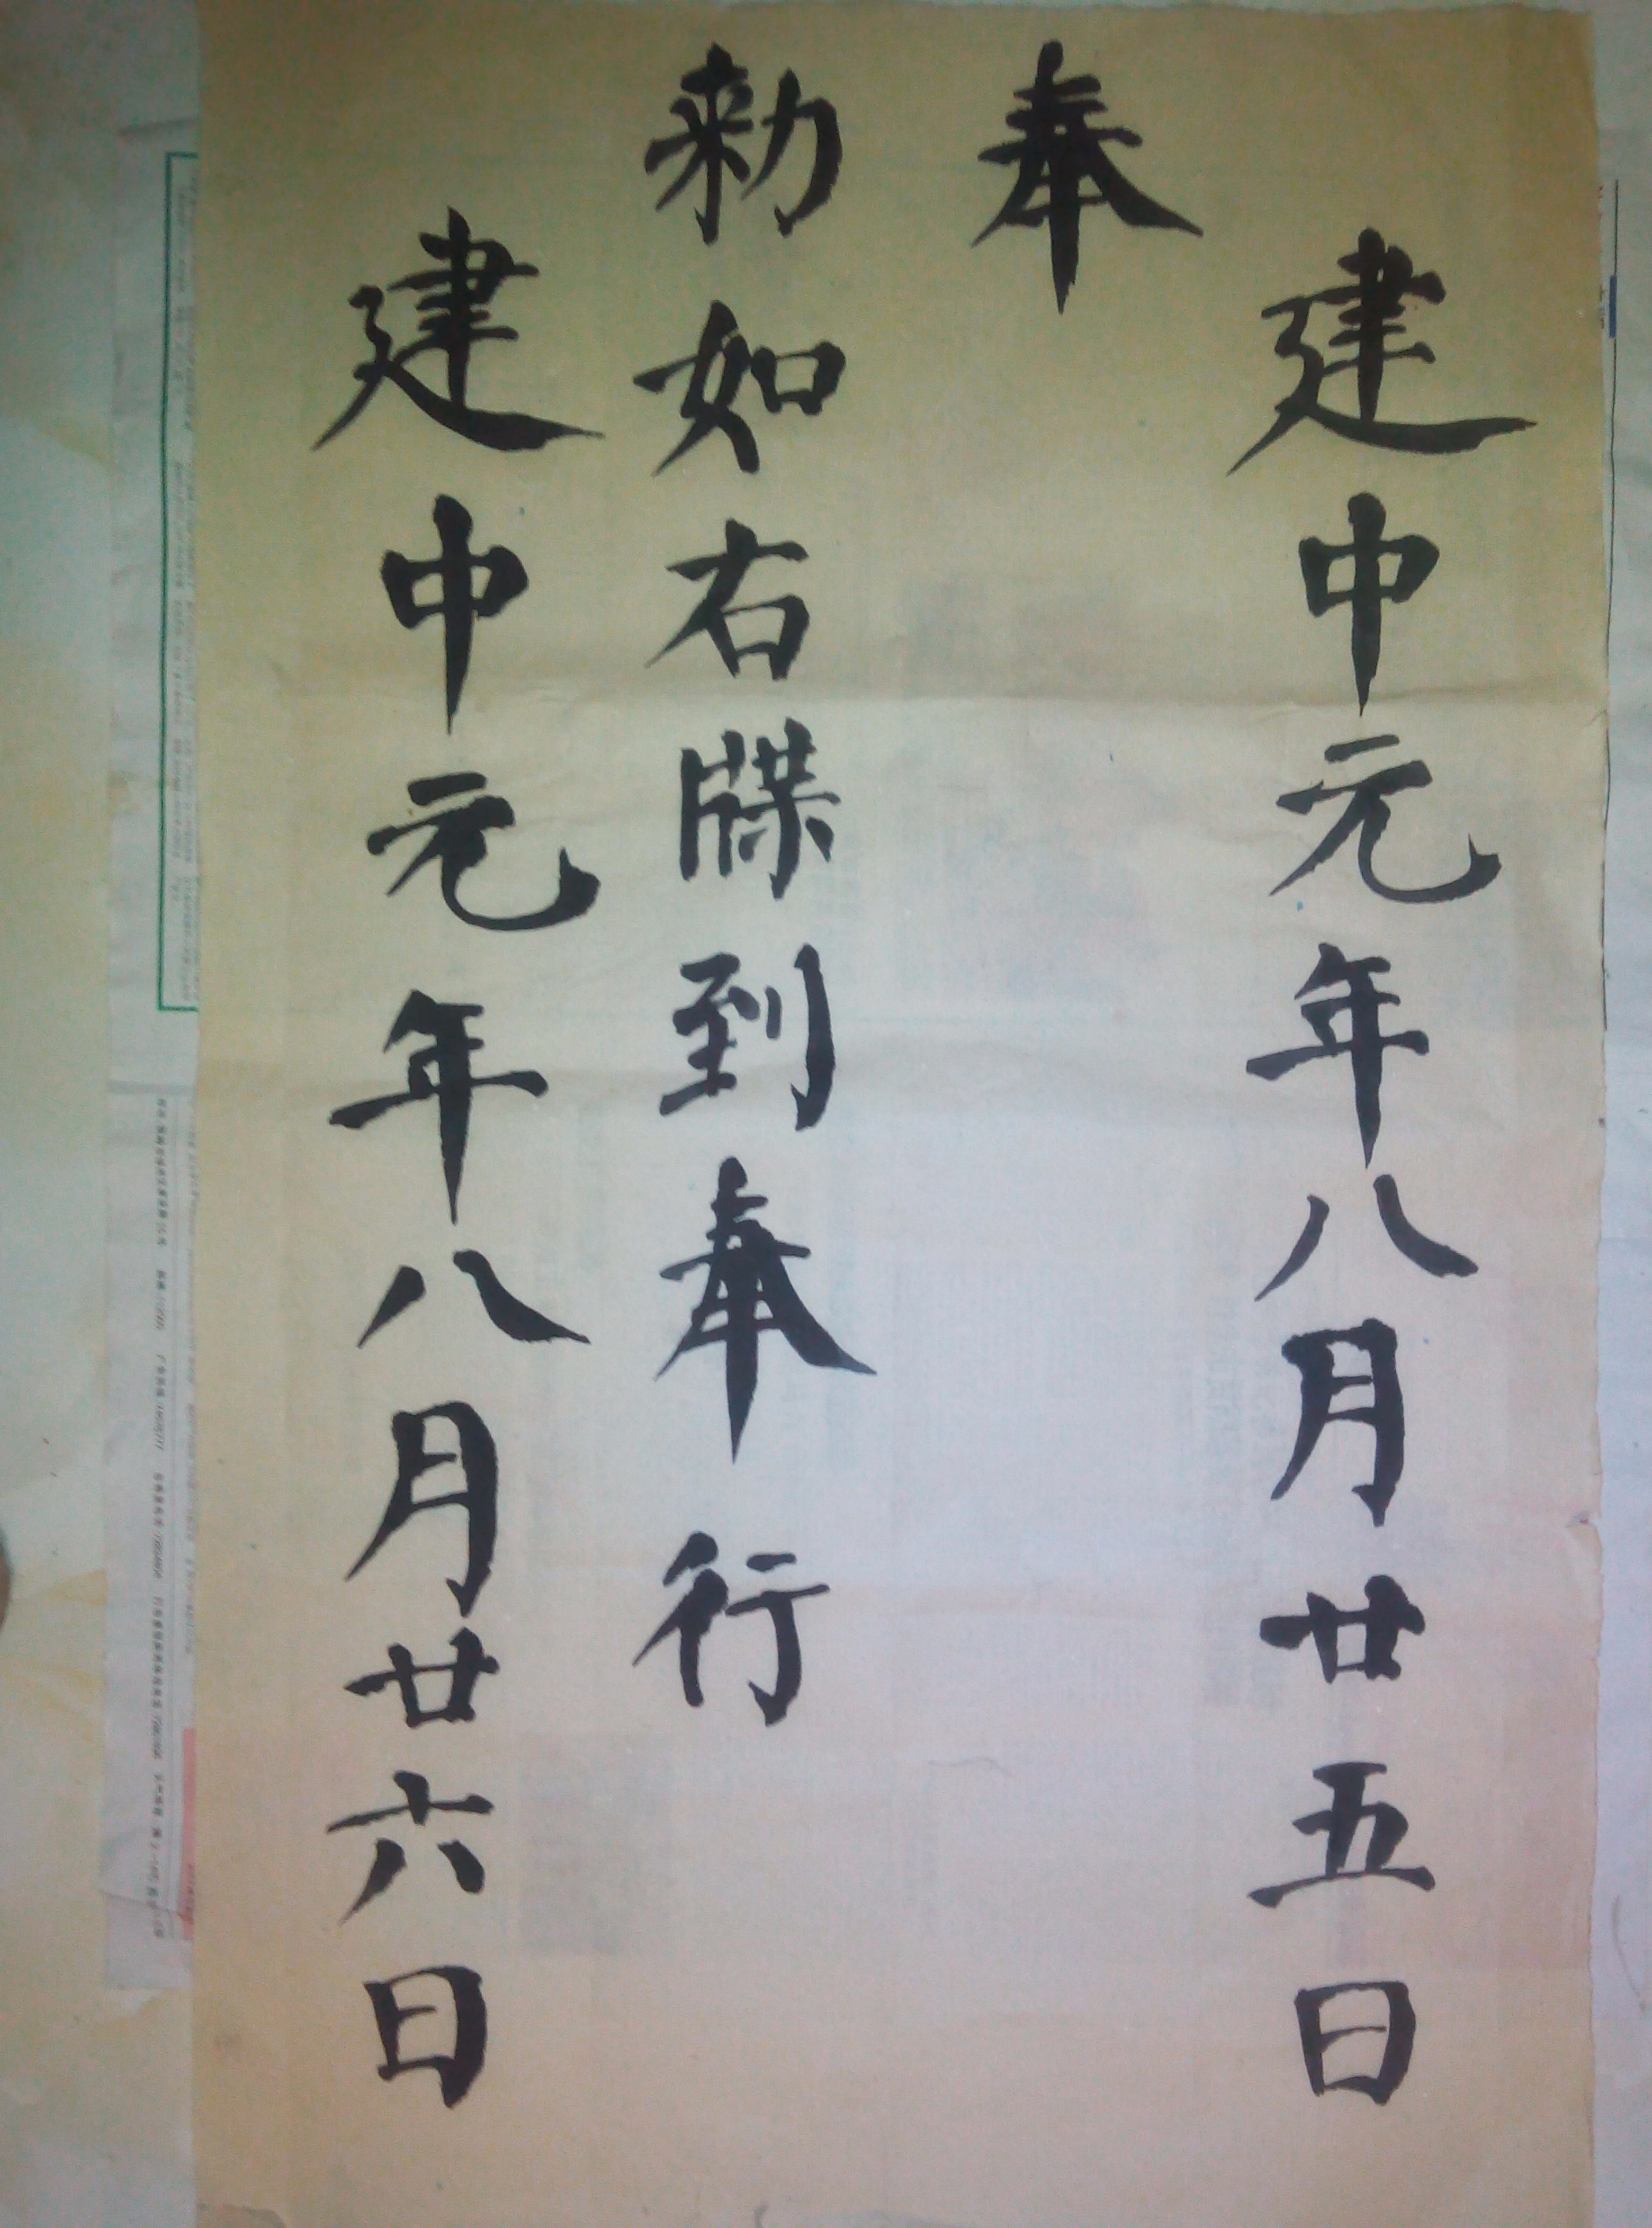 建中元年八月廿五日
奉
勑如右牒到奉行
建中元年八月廿六日